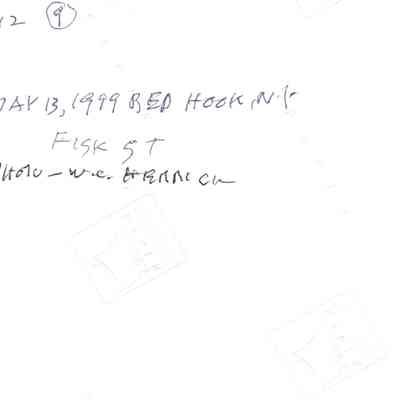 12 ⑨
MAY 13, 1999 RED HOOK, N.Y
FISK ST
PHOTO - W.C. HERRICK